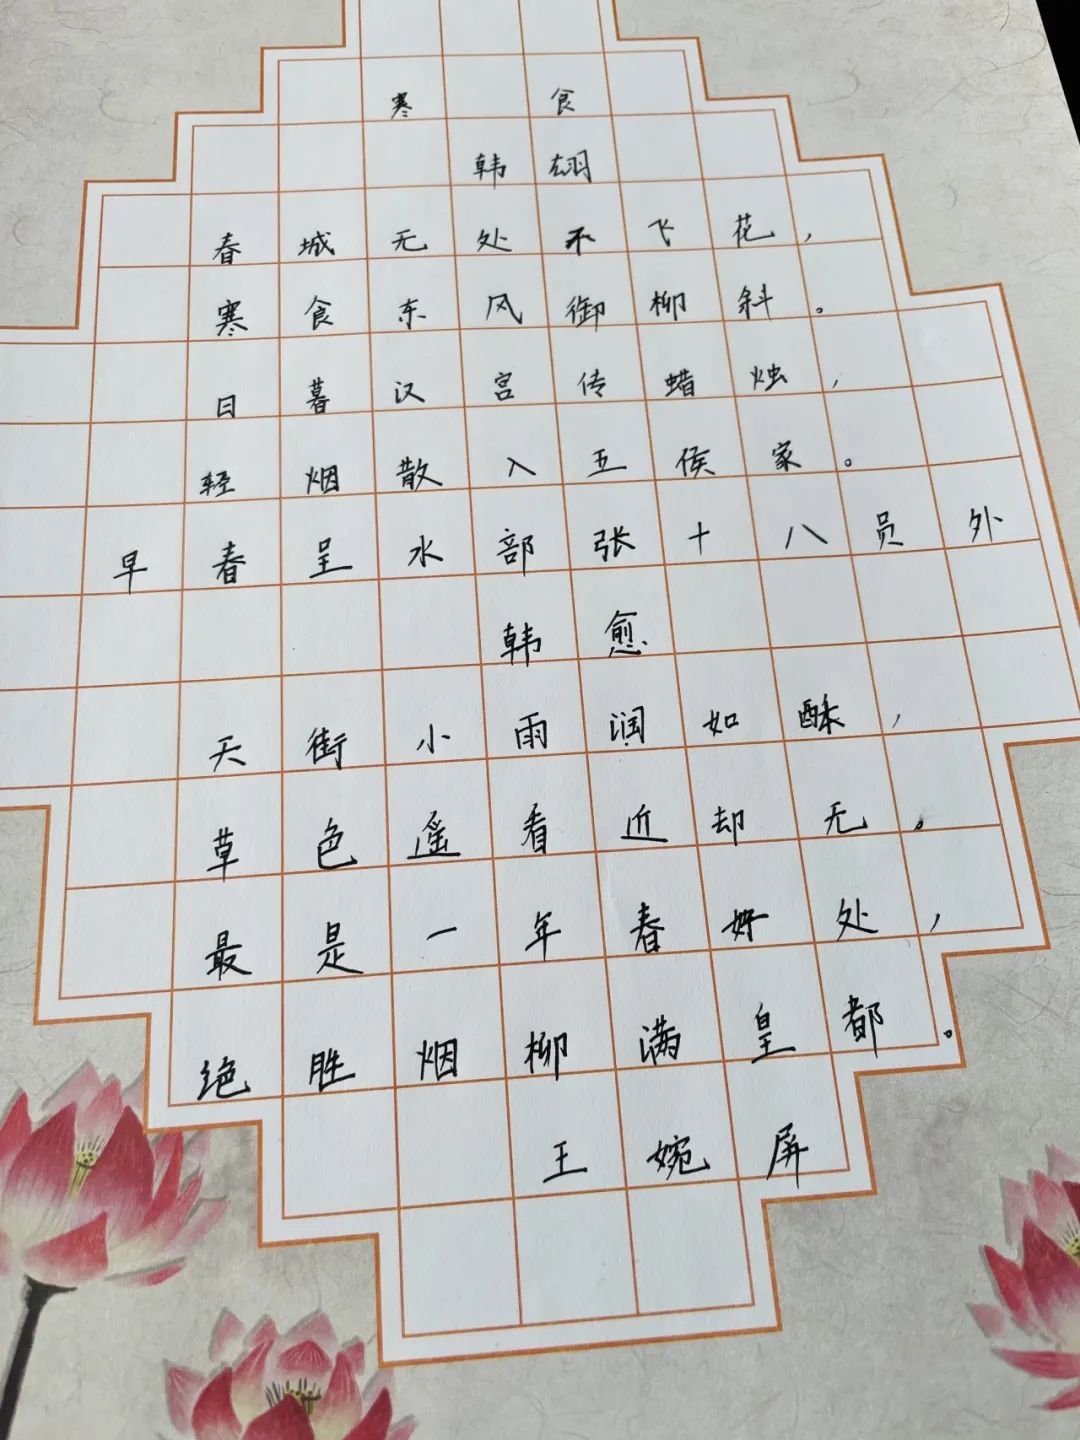 寒食
韩翃
春城无处不飞花，
寒食东风御柳斜。
日暮汉宫传蜡烛，
轻烟散入五侯家。
早春呈水部张十八员外
韩愈
天街小雨润如酥，
草色遥看近却无。
最是一年春好处，
绝胜烟柳满皇都。
王婉屏